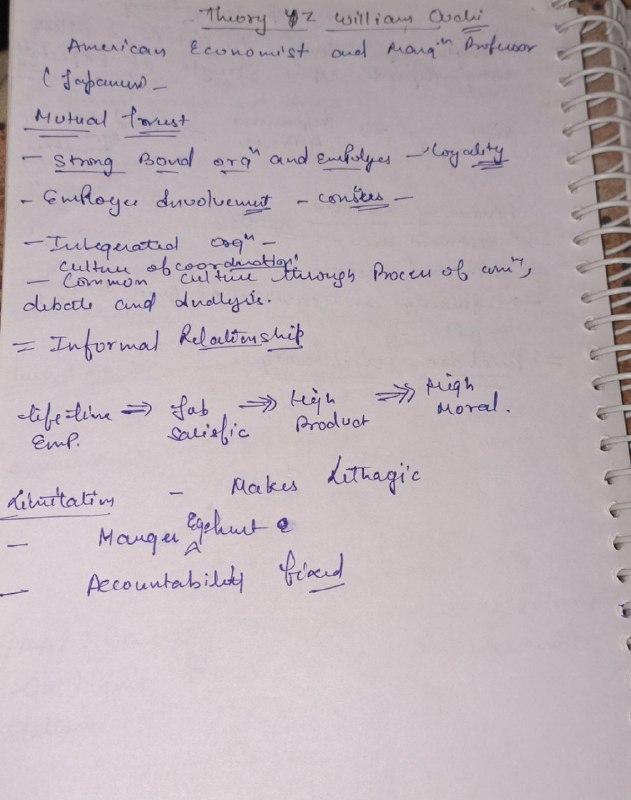 Theory Z William Ouchi
American Economist and Mang^n Professor
( Japanese) -
Mutual Trust
- Strong Bond org^n and Employes - loyality
- Employee Involvement -
- Integerated org^n -
culture of coordination
- Common culture through Process of com^n,
debate and Analysis.
= Informal Relationship
-life-time ⇒ Job ⇒ High ⇒ High
Emp. Satisfic Product Moral.
Limitation - Makes Lethagic
- Manger Egohurt
- Accountability fixed